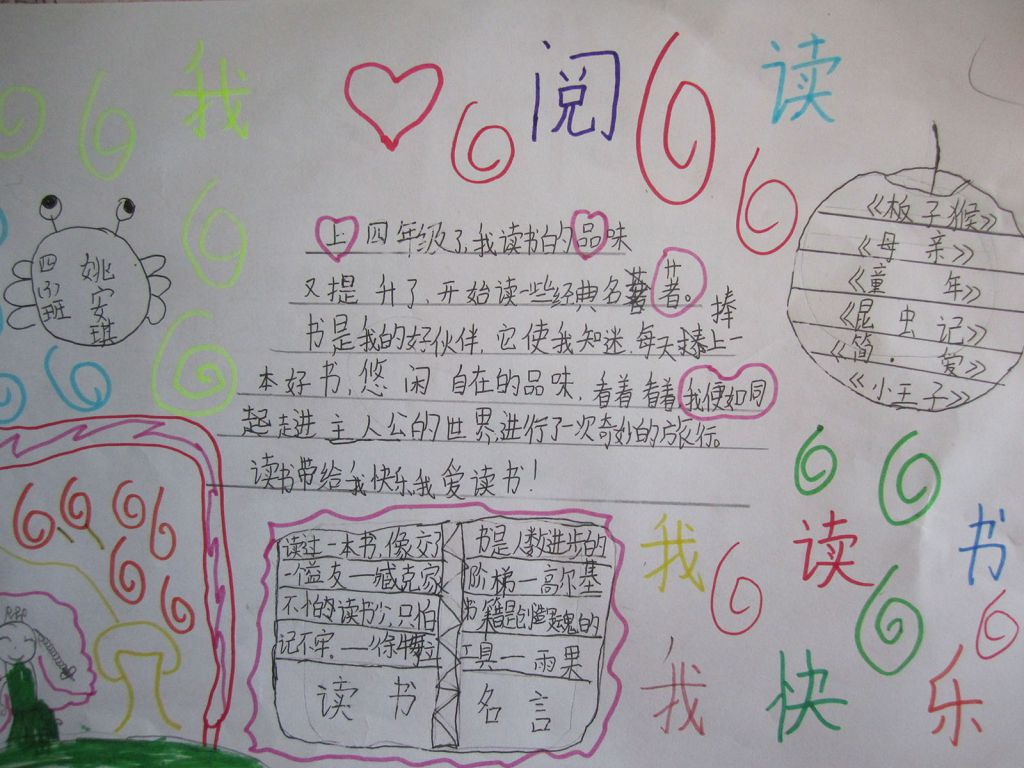 我 阅 读
四(3)班
姚安琪
上四年级了,我读书的品味
又提升了,开始读一些经典名著。捧
书是我的好伙伴,它使我知迷,每天捧上一
本好书,悠闲自在的品味,看着看着我便如同
起走进主人公的世界,进行了一次奇妙的旅行。
读书带给我快乐,我爱读书!
《板子猴》
《母亲》
《童年》
《昆虫记》
《简·爱》
《小王子》
读过一本书,像交了
一个益友—臧克家
不怕读书少,只怕
记不牢.—徐特立
读书
书是人类进步的
阶梯—高尔基
书籍是创造灵魂的
工具—雨果
名言
我 读 书
我 快 乐